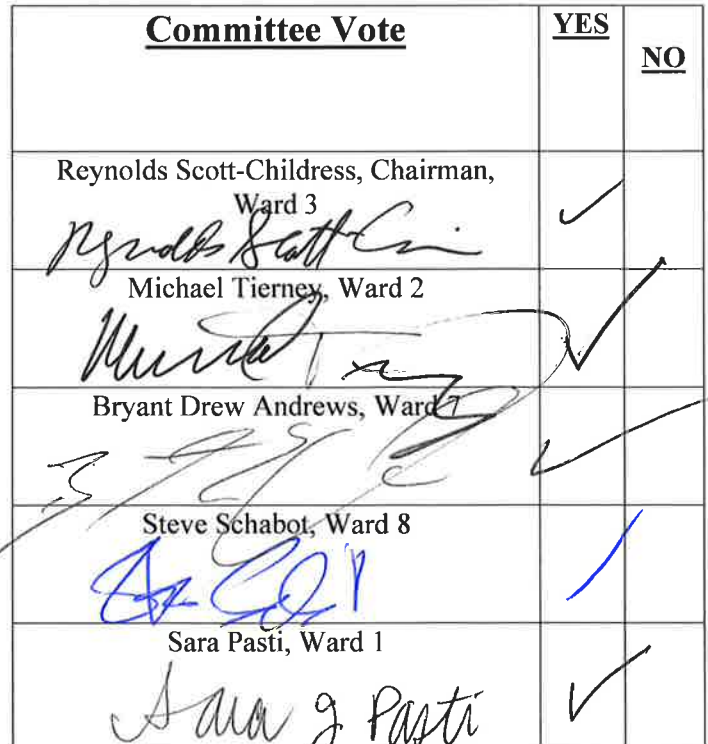 Committee Vote
YES
NO
Reynolds Scott-Childress, Chairman,
Ward 3
Reynolds Scott-C
Michael Tierney, Ward 2
Bryant Drew Andrews, Ward 7
Steve Schabot, Ward 8
Sara Pasti, Ward 1
Sara J Pasti